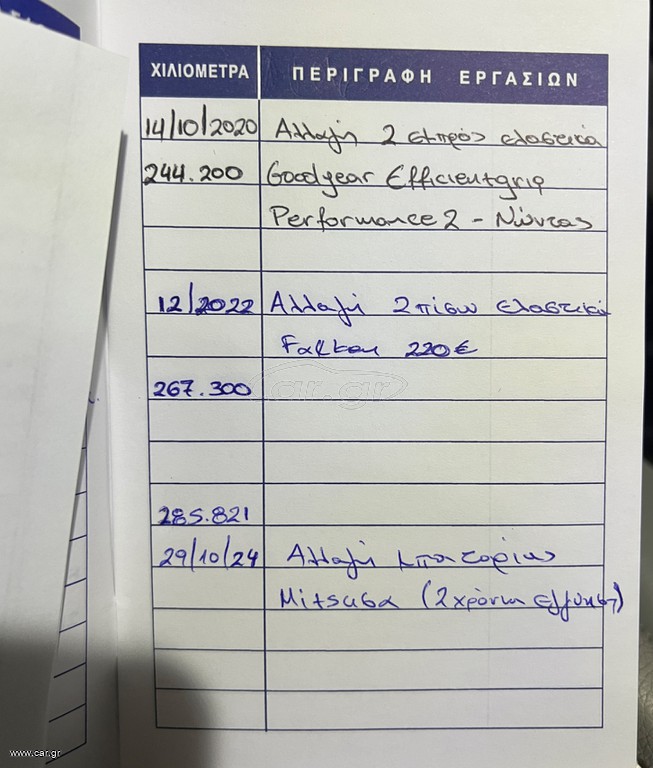 ΧΙΛΙΟΜΕΤΡΑ ΠΕΡΙΓΡΑΦΗ ΕΡΓΑΣΙΩΝ
14/10/2020 Αλλαγή 2 εμπρός ελαστικά
244.200 Goodyear Efficientgrip
Performance 2 - Νώντας
12/2022 Αλλαγή 2 πίσω ελαστικά
Falken 220€
267.300
car.gr
285.821
29/10/24 Αλλαγή μπαταρίας
Mitsuba (2 χρόνια εγγύηση)
www.car.gr